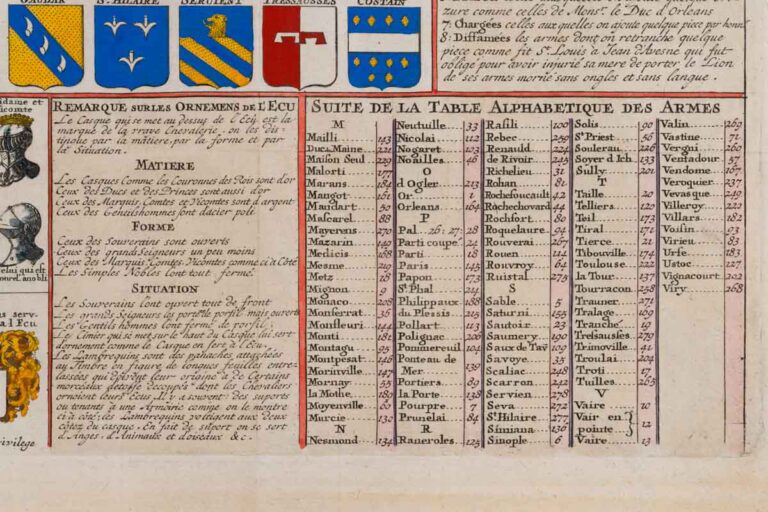 GAULAR ST. HILAIRE SERVIENT TRESSAUSSES COSTAIN
zuré comme celles de Monsr. le Duc d'Orleans
7: Chargées celles aux quelles on ajoute quelque piece par honn
8: Diffamées les armes dont on retranche quelque
piece comme fit St. Louis à Jean d'Avesne qui fut
obligé pour avoir injurié sa mere de porter le Lion
de ses armes morné sans ongles et sans langue.
REMARQUE SUR LES ORNEMENS DE L'ECU
Le Casque qui se met au dessus de l'Ecu est la
marque de la vraye Chevalerie, on les dis-
tingue par la matiere, par la forme et par
la Situation.
MATIERE
Les Casques Comme les Couronnes des Rois sont d'or
Ceux des Ducs et des Princes sont aussi d'or
Ceux des Marquis Comtes et Vicomtes sont d'argent
Ceux des Gentilshommes sont d'acier poli
FORME
Ceux des Souverains sont ouverts
Ceux des grands Seigneurs un peu moins
Ceux des Marquis, Comtes, Vicomtes comme ci à Côté
Les Simples Nobles l'ont tout fermé.
SITUATION
Les Souverains l'ont ouvert tout de front
Les grands Seigneurs les portent de porfil mais ouverts
Les Gentils hommes l'ont fermé de porfil
Le Cimier qui se met sur le haut du Casque lui sert
d'ornement comme le Casque en sert à l'Ecu.
Les Lambrequins sont des panaches attachées
au Timbre en figure de longues feuilles entre-
lassées
morceaux d'etofe decoupés dont les Chevaliers
ornoient leurs Ecus. Il y a souvent des suports
ou tenants à une Armoirie comme on le montre
ci à côté; les Lambrequins voltigent aux deux
côtez du casque. En fait de suport on se sert
d'Anges, d'Animaux et d'oiseaux &c.
SUITE DE LA TABLE ALPHABETIQUE DES ARMES
M
Mailli 143
Duc du Maine 121
Maison Seul 229
Malorti 177
Marans 184
Mangot 161
Mandart 50
Mascarel 88
Mayerens 270
Mazarin 149
Medicis 168
Mesme 219
Metz 18
Mignon 9
Monaco 208
Monserrat 36
Monfleuri 144
Monti 181
Montagu 95
Montpesat 146
Morinville 147
Mornay 55
la Mothe 180
Moyenville 60
Murcie 130
N
Nesmond 134
Neutuille 33
Nicolai 112
Nogaret 103
Noailles 46
O
d'Ogler 213
Or 1
Orleans 164
P
Pal 26: 27: 28
Parti coupé 24
Papin 172
Paris 143
Parti 18
St. Phal 214
Philippaux 188
du Plessis 215
Pollart 113
Polignac 200
Pommereuil 104
Ponteau de
Mer 139
Portiers 89
la Porte 138
Pourpre 7
Prunelai 84
R
Raneroles 125
Rasili 100
Rebec 259
Renauld 224
de Rivoir 245
Richelieu 31
Rohan 81
Rochefoucault 42
Rochechovard 44
Rochfort 80
Roquelaure 94
Rouverai 267
Rouen 114
Rouvroy 64
Ruistal 275
S
Sable 5
Saturni 155
Sautoir 23
Saumery 190
Saux de Tav 109
Savoye 35
Scaliac 248
Scarron 242
Servien 278
Seva 272
St. Hilaire 277
Simiana 136
Sinople 6
Solis 90
St. Priest 56
Soulerau 226
Soyer d'Ich 133
Sully 201
T
Taille 20
Telliers 129
Teil 173
Tiral 171
Tierce 21
Tibouville 174
Toulouse 122
la Tour 137
Tourracon 258
Trauner 271
Tralage 169
Tranché 19
Tressausles 279
Trimoville 41
Troulai 104
Troti 17
Tuilles 265
V
Vaire 10
Vair en
pointe 12
Vaire 13
Valin 269
Vastine 71
Vergni 260
Ventadour 57
Vendome 167
Veroquier 237
Vevasque 249
Villeroy 221
Villars 182
Voisin 93
Virieu 83
Urfé 183
Ustez 231
Vignacourt 202
Viry 268